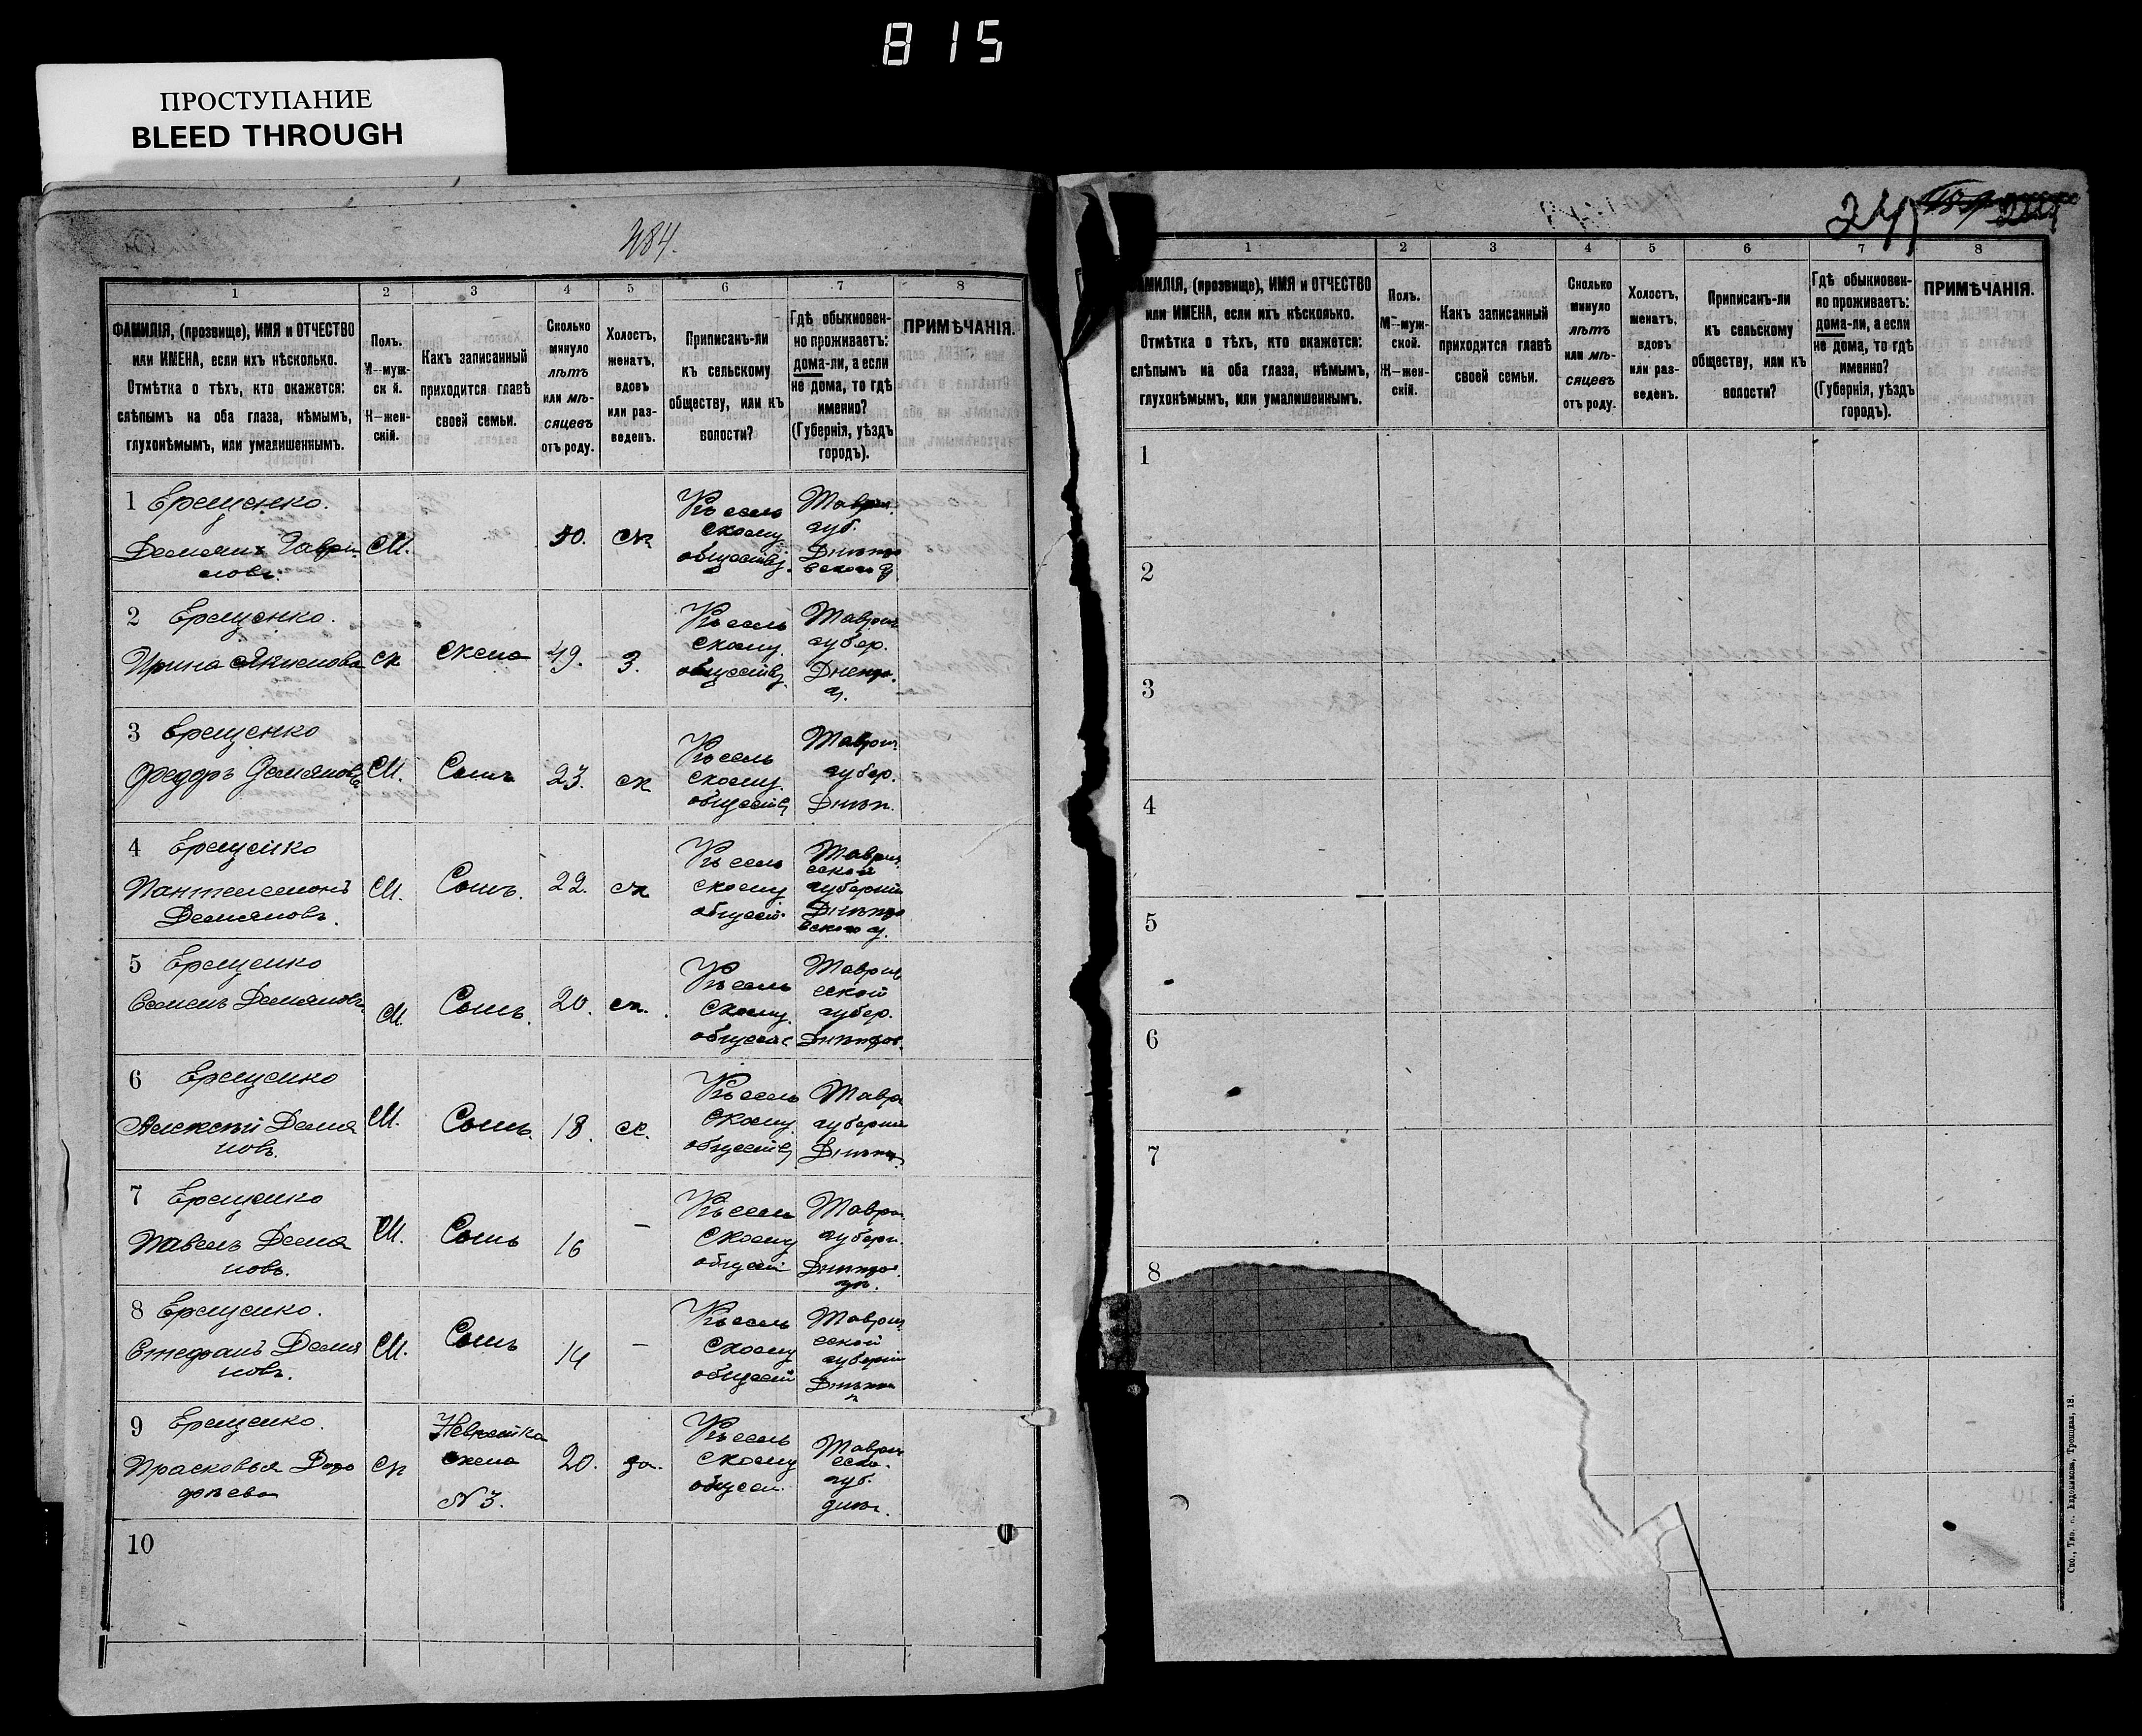 815
ПРОСТУПАНИЕ
BLEED THROUGH
484.
1 2 3 4 5 6 7 8
ФАМИЛІЯ, (прозвище), ИМЯ и ОТЧЕСТВО
или ИМЕНА, если ихъ нѣсколько.
Отмѣтка о тѣхъ, кто окажется:
слѣпымъ на оба глаза, нѣмымъ,
глухонѣмымъ, или умалишеннымъ.
Полъ.
М—муж-
ск й.
Ж—жен-
скій.
Какъ записанный
приходится главѣ
своей семьи.
Сколько
минуло
лѣтъ
или мѣ-
сяцевъ
отъ роду.
Холостъ,
женатъ,
вдовъ
или раз-
веденъ.
Приписанъ-ли
къ сельскому
обществу, или къ
волости?
Гдѣ обыкновен-
но проживаетъ:
дома-ли, а если
не дома, то гдѣ
именно?
(Губернія, уѣздъ
городъ).
ПРИМѢЧАНІЯ.
1 Ерещенко.
Демянъ Гаври
ловъ.
М.
50.
ж
Къ сель
скому
обществу.
Таврич.
губ.
Днѣпро
вскаго у
2 Ерещенко.
Ирина Якимова
ж
жена
49.
З.
Къ сель
скому
обществу
Таврич
губер.
Днепр.
у.
3 Ерещенко
Федоръ Демяновъ
М.
Сынъ
23.
ж
Къ сель
скому.
обществ
Таврич
губер.
Днѣп.
4 Ерещенко
Пантелемонъ
Демяновъ.
М.
Сынъ.
22.
ж
Къ сель
скому
общест.
Таврич
еской
губерніи
Днѣпро
вскаго у.
5 Ерещенко
Семенъ Демяновъ
М.
Сынъ.
20.
ж.
Къ сель
скому.
общест
Таврич
еской
губер.
Днѣпров.
6 Ерещенко
Алексѣй Демя
новъ.
М.
Сынъ.
18.
ж.
Къ сель
скому.
обществ
Таври
губерніи
Днѣпр.
7 Ерещенко
Павелъ Демя
новъ.
М.
Сынъ
16
—
Къ сель
скому
общест
Таври.
губерн.
Днѣпров.
8 Ерещенко.
Стефанъ Демя
новъ.
М.
Сынъ
14
—
Къ сель
скому
общест
Таврич
еской
губерніи
Днѣпр
9 Ерещенко.
Прасковья Доро
фѣева
ж
Невѣстка
жена
№ 3.
20.
за.
Къ сель
скому
общест.
Таврич
еско.
губ.
днѣп.
10
1 2 3 4 5 6 7 8
АМИЛІЯ, (прозвище), ИМЯ и ОТЧЕСТВО
или ИМЕНА, если ихъ нѣсколько.
Отмѣтка о тѣхъ, кто окажется:
слѣпымъ на оба глаза, нѣмымъ,
глухонѣмымъ, или умалишеннымъ.
Полъ.
М—муж-
ской.
Ж—жен-
скій.
Какъ записанный
приходится главѣ
своей семьи.
Сколько
минуло
лѣтъ
или мѣ-
сяцевъ
отъ роду.
Холостъ,
женатъ,
вдовъ
или раз-
веденъ.
Приписанъ-ли
къ сельскому
обществу, или къ
волости?
Гдѣ обыкновен-
но проживаетъ:
дома-ли, а если
не дома, то гдѣ
именно?
(Губернія, уѣздъ
городъ).
ПРИМѢЧАНІЯ.
1
2
3
4
5
6
7
8
Спб., Тип. Е. Евдокимова, Троицкая, 18.